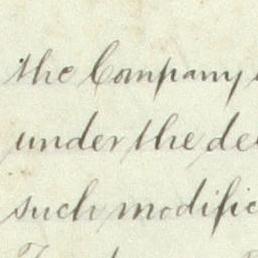 the Company
under the de
such modific